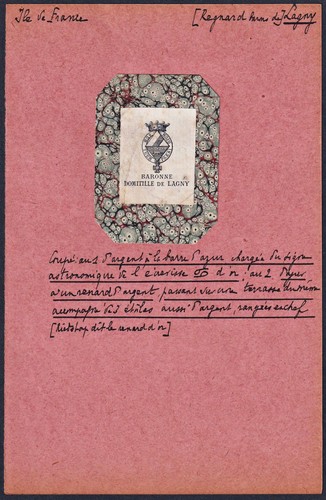 Ile de France [Regnard barons de] Lagny
BARONNE
DOMITILLE DE LAGNY
Coupé: au 1 d'argent à la barre d'azur chargée du signe
astronomique de l'écrevisse ♋ d'or: au 2 d'azur
à un renard d'argent, passant sur une terrasse du même
accompagné de 3 étoiles aussi d'argent, rangées en chef
[Rietstap dit le renard d'or]